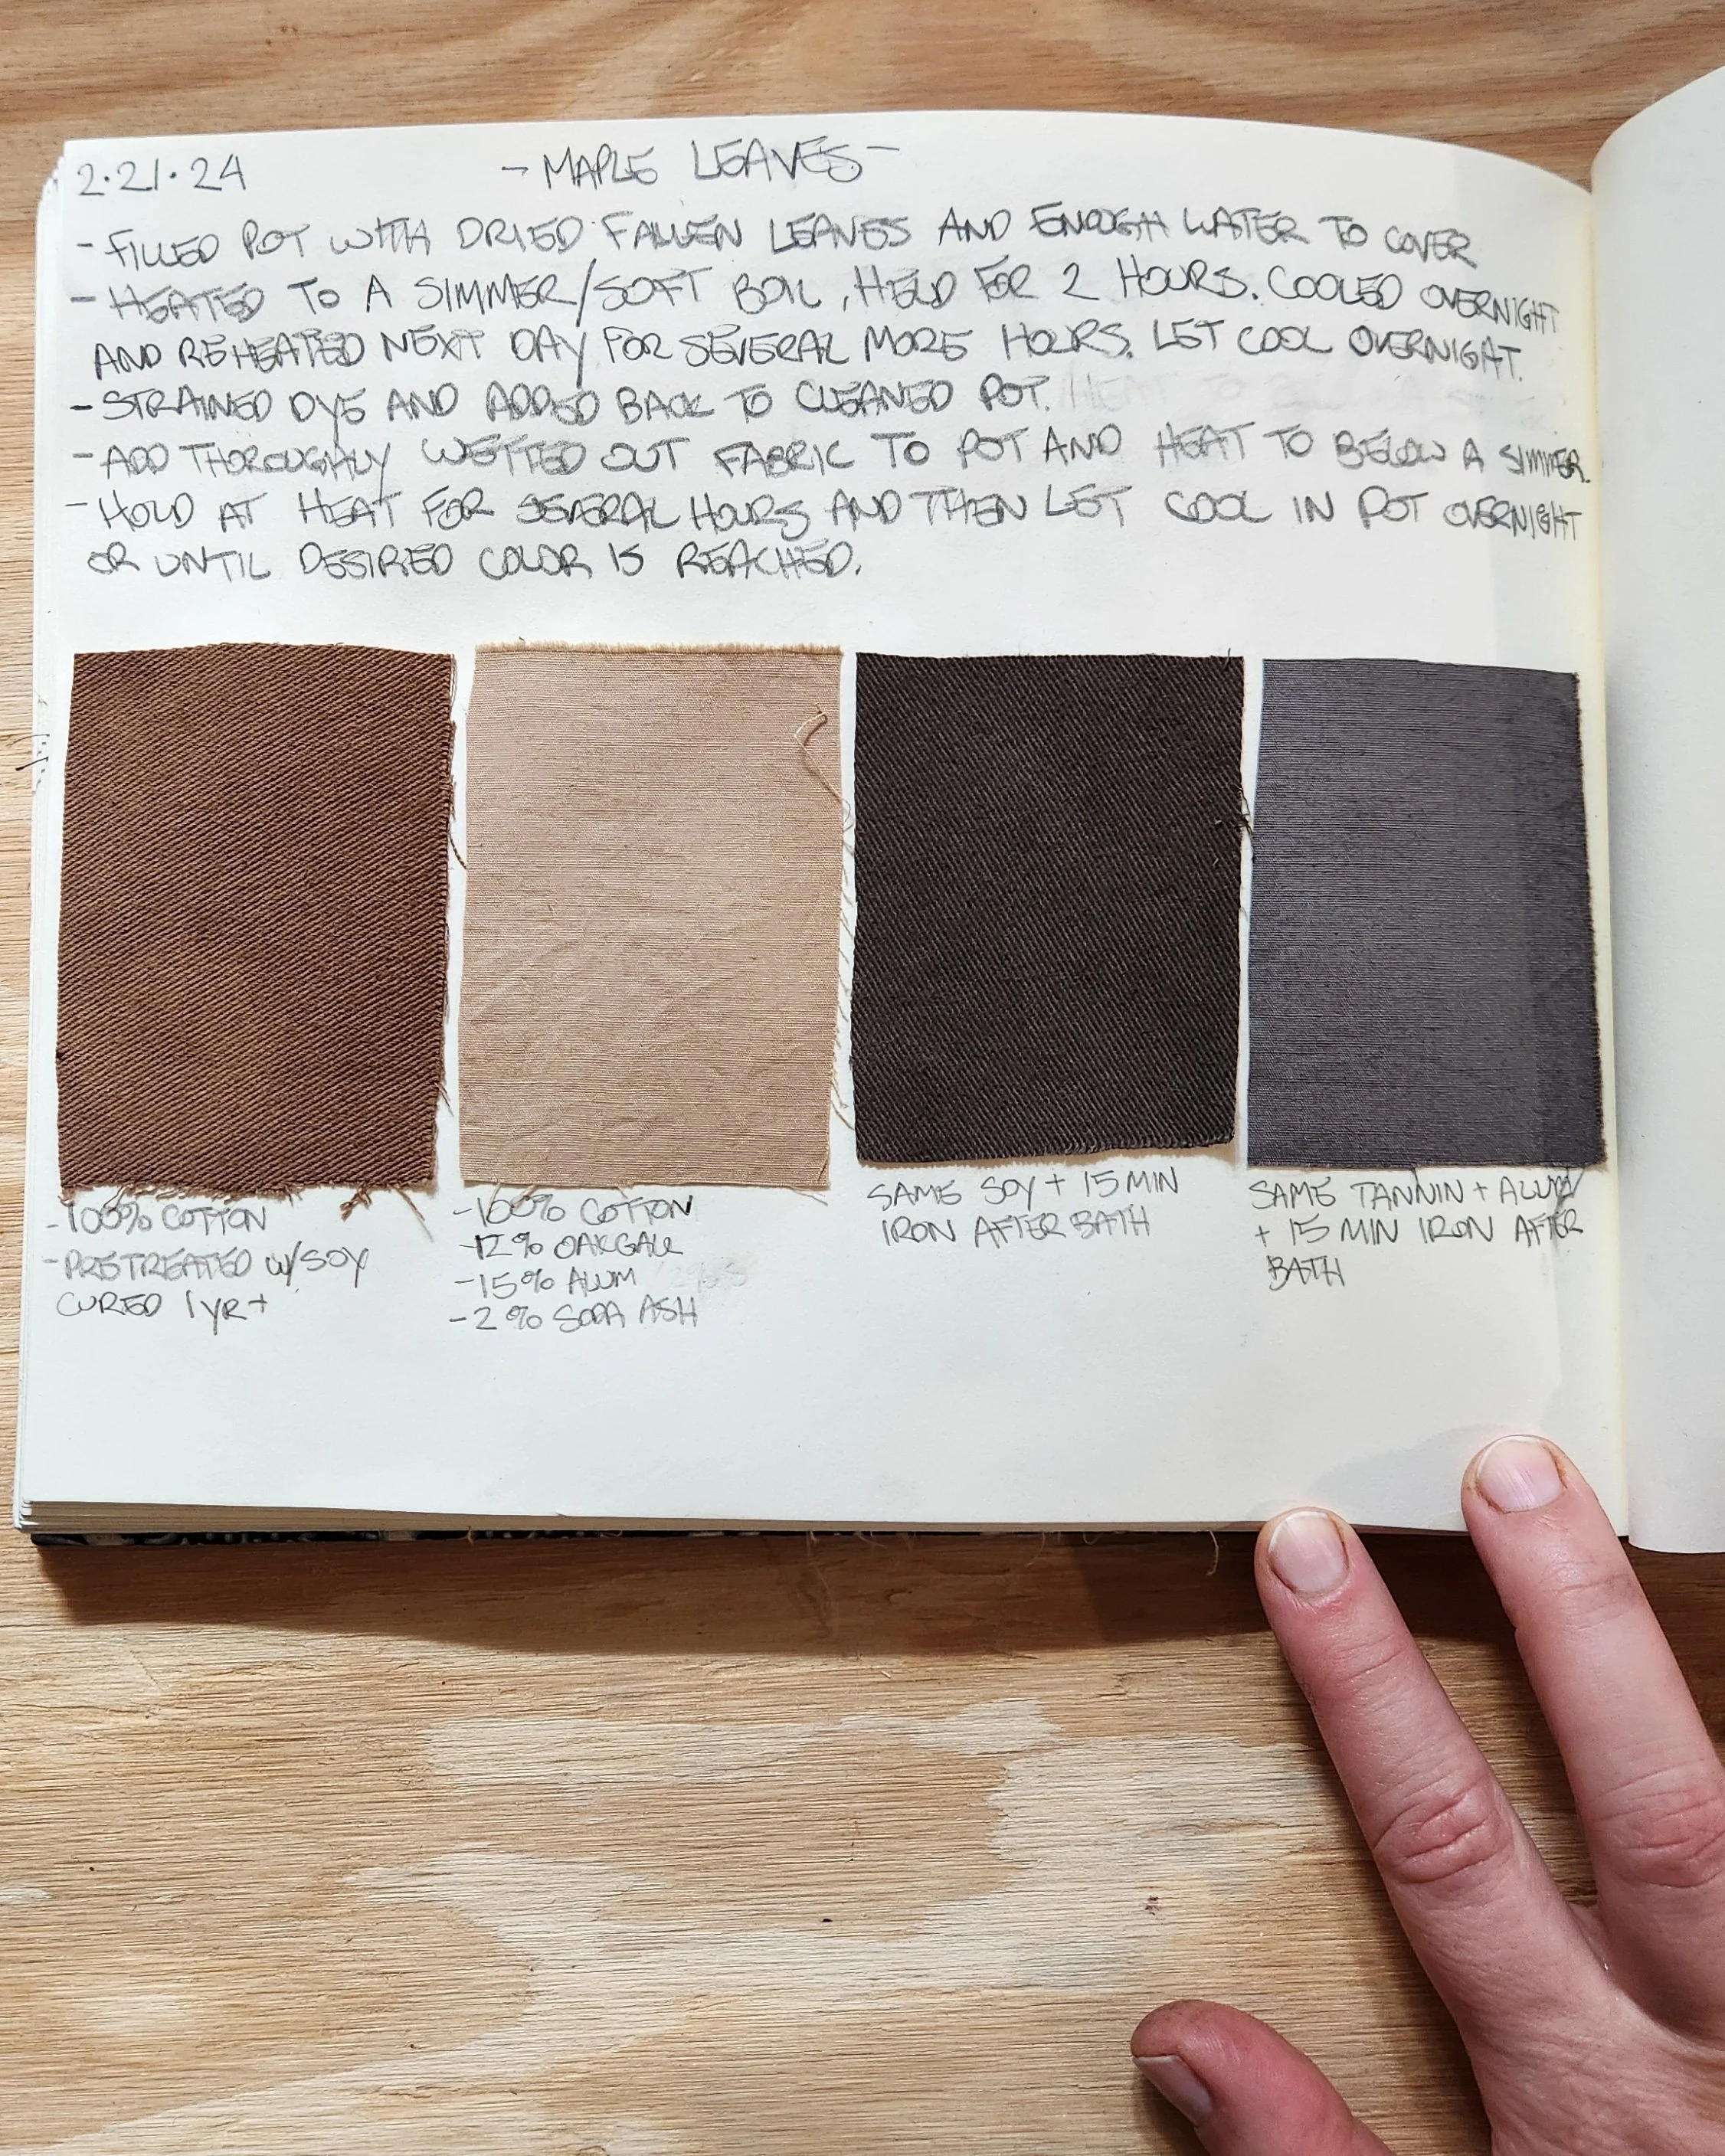 2.21.24 - MAPLE LEAVES -
- FILLED POT WITH DRIED FALLEN LEAVES AND ENOUGH WATER TO COVER
- HEATED TO A SIMMER/SOFT BOIL, HELD FOR 2 HOURS. COOLED OVERNIGHT
AND REHEATED NEXT DAY FOR SEVERAL MORE HOURS. LET COOL OVERNIGHT.
- STRAINED DYE AND ADDED BACK TO CLEANED POT.
- ADD THOROUGHLY WETTED OUT FABRIC TO POT AND HEAT TO BELOW A SIMMER.
- HOLD AT HEAT FOR SEVERAL HOURS AND THEN LET COOL IN POT OVERNIGHT
OR UNTIL DESIRED COLOR IS REACHED.
- 100% COTTON
- PRETREATED W/SOY
CURED 1 YR+
- 100% COTTON
- 12% OAKGALL
- 15% ALUM
- 2% SODA ASH
SAME SOY + 15 MIN
IRON AFTER BATH
SAME TANNIN + ALUM
+ 15 MIN IRON AFTER
BATH